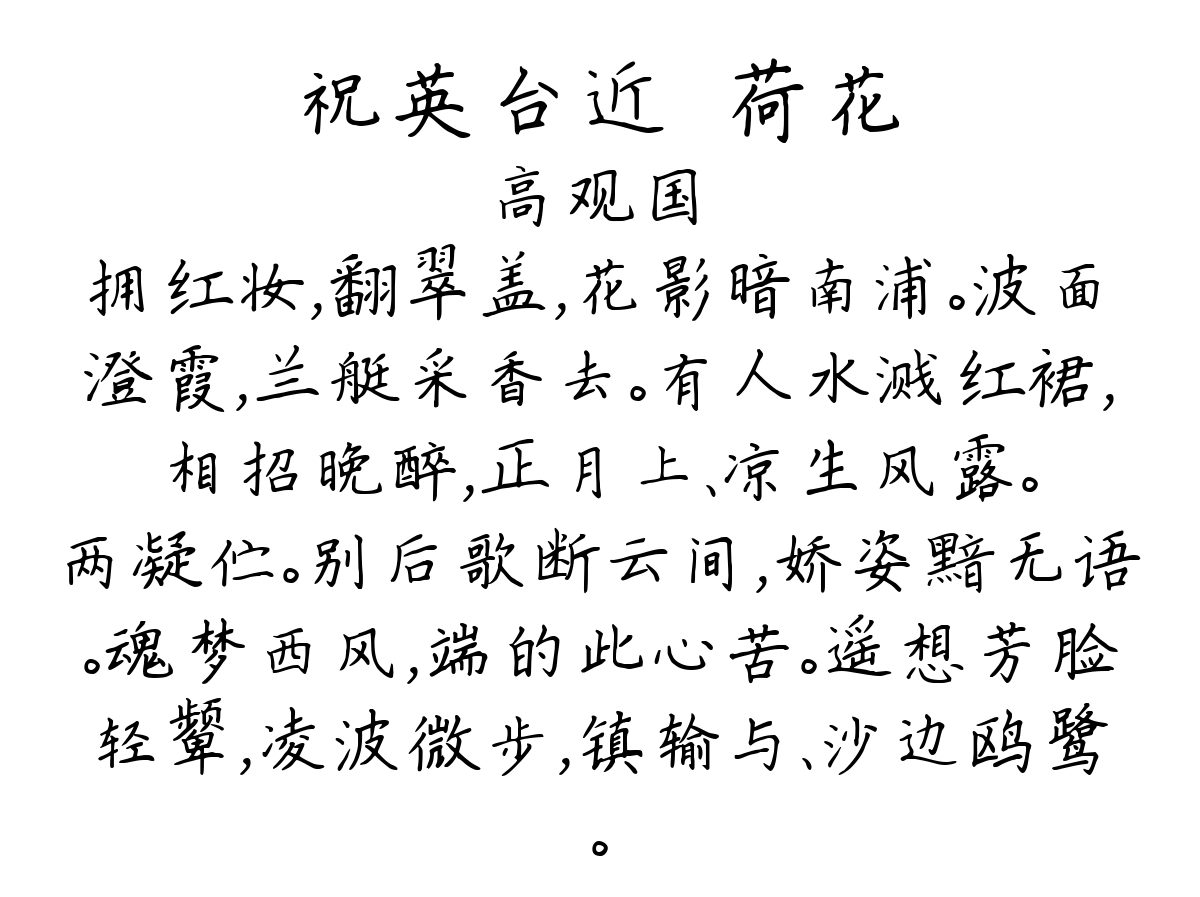 祝英台近 荷花
高观国
拥红妆,翻翠盖,花影暗南浦。波面
澄霞,兰艇采香去。有人水溅红裙,
相招晚醉,正月上、凉生风露。
两凝伫。别后歌断云间,娇姿黯无语
。魂梦西风,端的此心苦。遥想芳脸
轻颦,凌波微步,镇输与、沙边鸥鹭
。